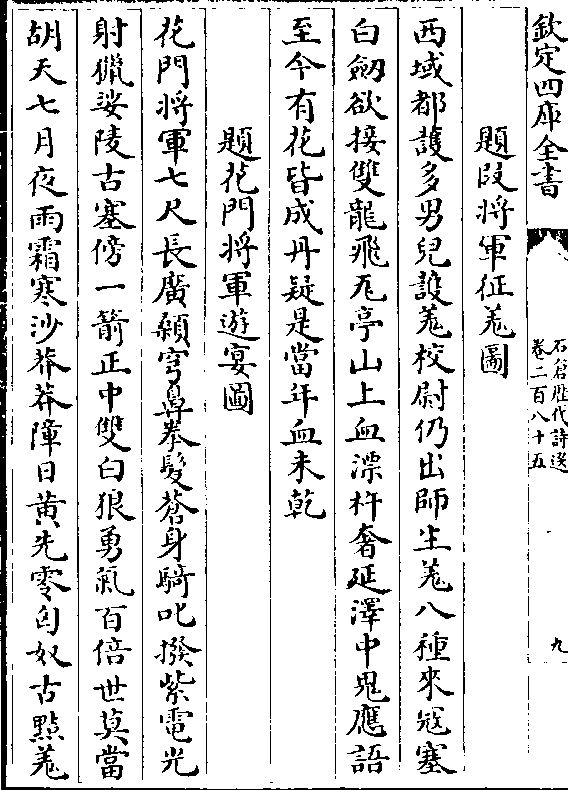 欽定四庫全書
石倉歴代詩選
卷二百八十五
九
題段將軍征羗圖
西域都護多男兒護羗校尉仍出師生羗八種來寇塞
白劒欲接雙龍飛瓦亭山上血漂杵奢延澤中鬼應語
至今有花皆成丹疑是當年血未乾
題花門將軍遊宴圖
花門將軍七尺長廣顙穹鼻拳髮蒼身騎叱撥紫電光
射獵娑陵古塞傍一箭正中雙白狼勇氣百倍世莫當
胡天七月夜雨霜寒沙莽莽障日黄先零匈奴古黠羗